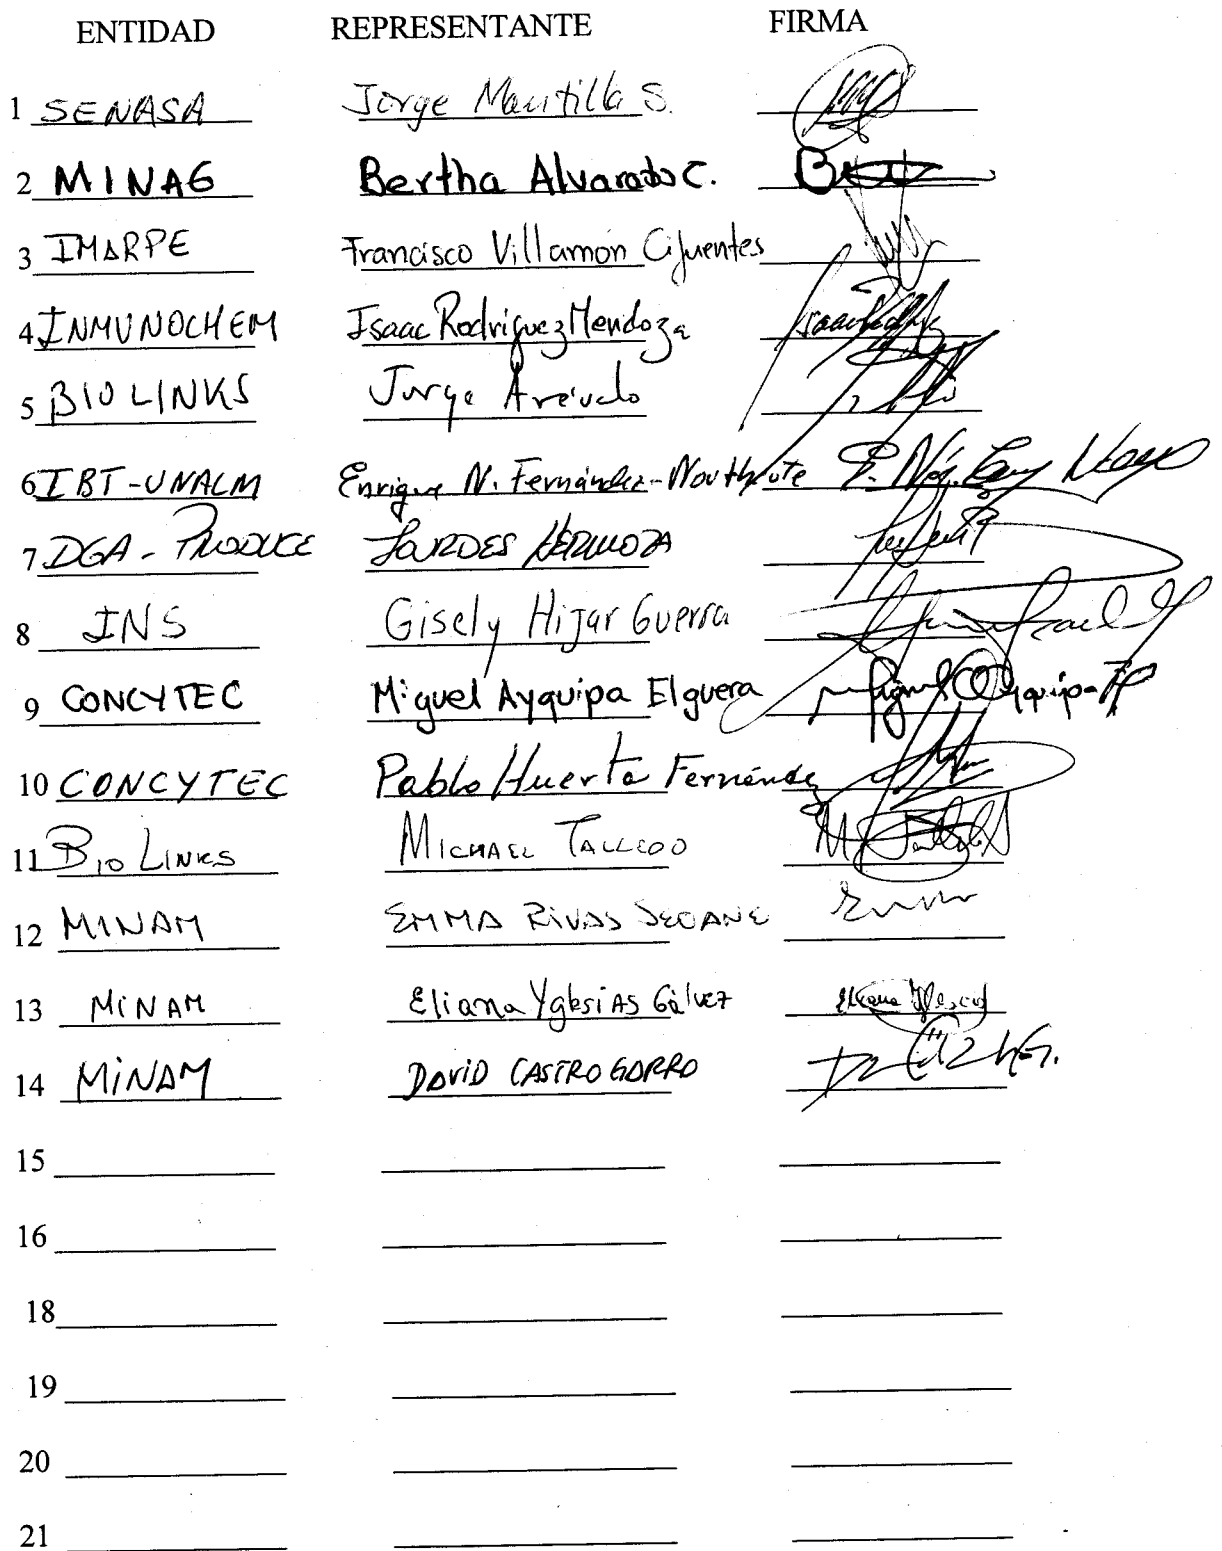 ENTIDAD REPRESENTANTE FIRMA
1 SENASA Jorge Mantilla S.
2 MINAG Bertha Alvarado C.
3 IMARPE Francisco Villamón Cifuentes
4 INMUNOCHEM Isaac Rodríguez Mendoza
5 BIO LINKS Jorge Arévalo
6 IBT-UNALM Enrique N. Fernández-Northcote
7 DGA - PRODUCE LOURDES HERMOZA
8 INS Gisely Hijar Guerra
9 CONCYTEC Miguel Ayquipa Elguera
10 CONCYTEC Pablo Huerta Fernández
11 BIO LINKS MICHAEL TALLEDO
12 MINAM EMMA RIVAS SEOANE
13 MINAM Eliana Yglesias Gálvez
14 MINAM DAVID CASTRO GARRO
15
16
18
19
20
21